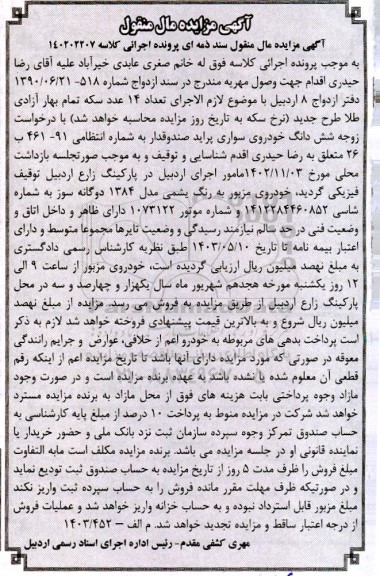 آگهی مزایده مال منقول
آگهی مزایده مال منقول سند ذمه ای پرونده اجرائی کلاسه ۱۴۰۲۰۲۲۰۷
به موجب پرونده اجرائی کلاسه فوق له خانم صغری عابدی خیرآباد علیه آقای رضا
حیدری اقدام جهت وصول مهریه مندرج در سند ازدواج شماره ۵۱۸- ۱۳۹۰/۰۶/۲۱
دفتر ازدواج ۸ اردبیل با موضوع لازم الاجرای تعداد ۱۴ عدد سکه تمام بهار آزادی
طلا طرح جدید (نرخ سکه به تاریخ روز مزایده محاسبه خواهد شد) با درخواست
زوجه شش دانگ خودروی سواری پراید صندوقدار به شماره انتظامی ۹۱- ۴۶۱ ب
۲۶ متعلق به رضا حیدری اقدم شناسایی و توقیف و به موجب صورتجلسه بازداشت
محلی مورخ ۱۴۰۲/۱۱/۰۳مامور اجرای اردبیل در پارکینگ زارع اردبیل توقیف
فیزیکی گردید، خودروی مزبور به رنگ یشمی مدل ۱۳۸۴ دوگانه سوز به شماره
شاسی S۱۴۱۲۲۸۴۴۶۰۸۵۲ و شماره موتور ۱۰۷۳۱۲۲ دارای ظاهر و داخل اتاق و
وضعیت فنی در حد سالم نیازمند رسیدگی و وضعیت تایرها مجموعا متوسط و دارای
اعتبار بیمه نامه تا تاریخ ۱۴۰۳/۰۵/۱۰ طبق نظریه کارشناس رسمی دادگستری
به مبلغ نهصد میلیون ریال ارزیابی گردیده است، خودروی مزبور از ساعت ۹ الی
۱۲ روز یکشنبه مورخه هجدهم شهریور ماه سال یکهزار و چهارصد و سه در محل
پارکینگ زارع اردبیل از طریق مزایده به فروش می رسد. مزایده از مبلغ نهصد
میلیون ریال شروع و به بالاترین قیمت پیشنهادی فروخته خواهد شد لازم به ذکر
است پرداخت بدهی های مربوطه به خودرو اعم از خلافی، عوارض و جرایم رانندگی
معوقه در صورتی که مورد مزایده دارای آنها باشد تا تاریخ مزایده اعم از اینکه رقم
قطعی آن معلوم شده یا نشده باشد به عهده برنده مزایده است و در صورت وجود
مازاد وجوه پرداختی بابت هزینه های فوق از محل مازاد به برنده مزایده مسترد
خواهد شد شرکت در مزایده منوط به پرداخت ۱۰ درصد از مبلغ پایه کارشناسی به
حساب صندوق تمرکز وجوه سپرده سازمان ثبت نزد بانک ملی و حضور خریدار یا
نماینده قانونی او در جلسه مزایده می باشد. برنده مزایده مکلف است مابه التفاوت
مبلغ فروش را ظرف مدت ۵ روز از تاریخ مزایده به حساب صندوق ثبت تودیع نماید
و در صورتیکه ظرف مهلت مقرر مانده فروش را به حساب سپرده ثبت واریز نکند
مبلغ مزبور قابل استرداد نبوده و به حساب خزانه واریز خواهد شد و عملیات فروش
از درجه اعتبار ساقط و مزایده تجدید خواهد شد. م الف – ۱۴۰۳/۴۵۲
مهری کشفی مقدم- رئیس اداره اجرای اسناد رسمی اردبیل